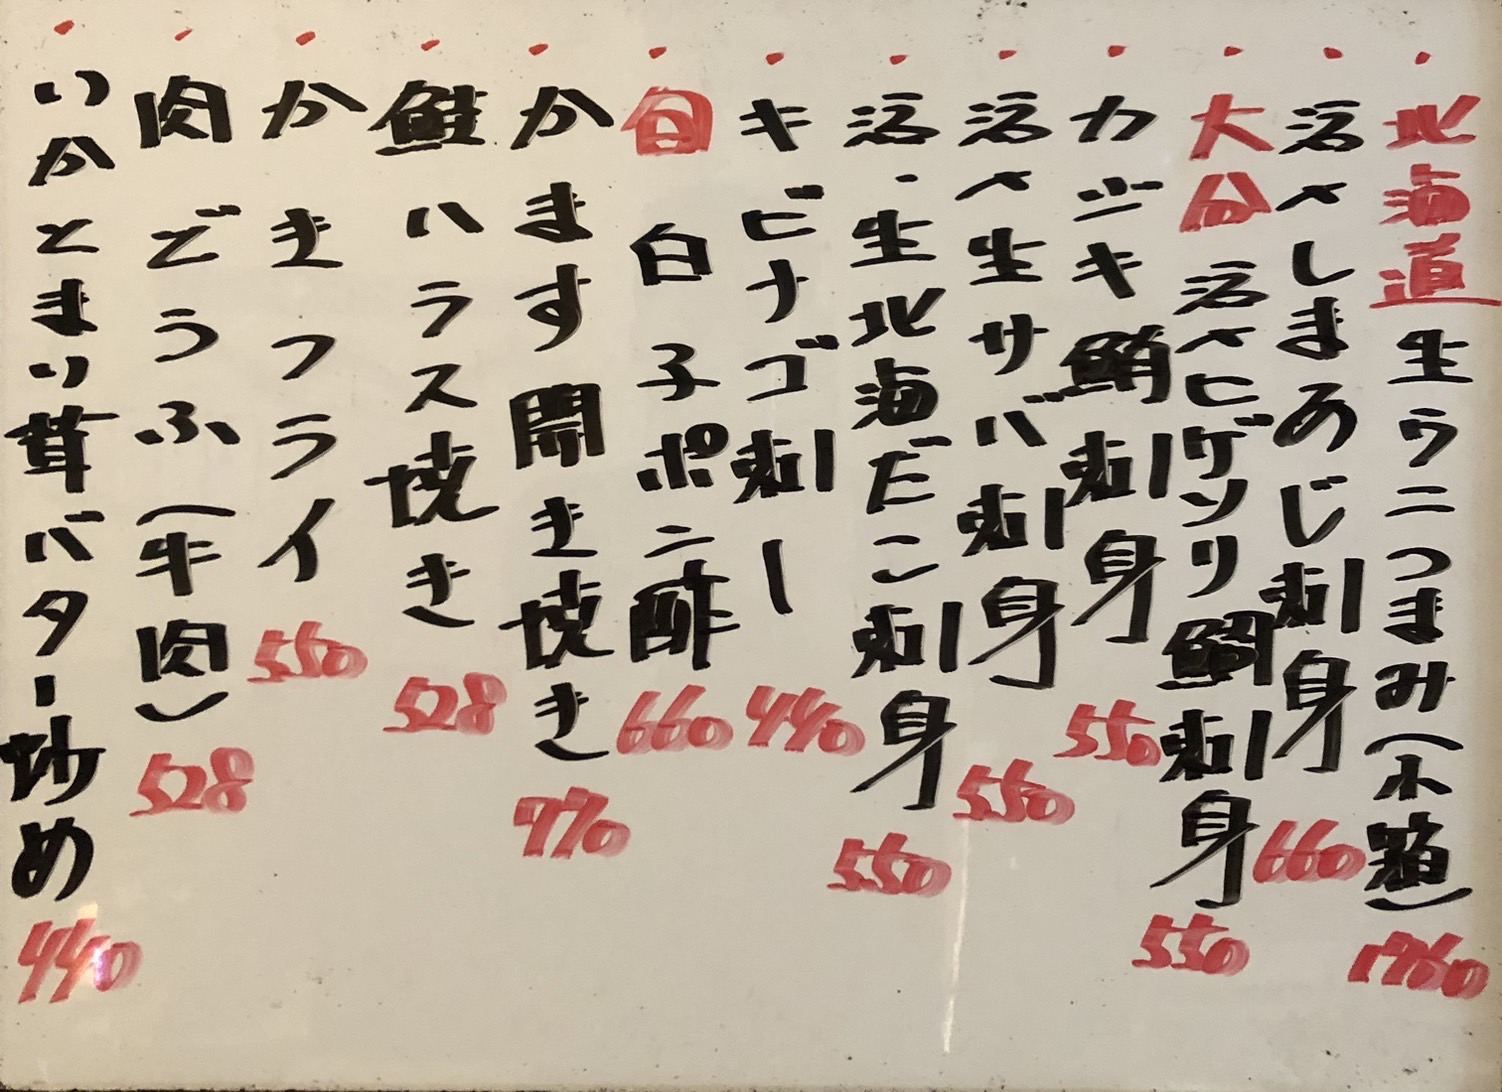 ・北海道生ウニつまみ(小箱) 1760
・活〆しまあじ刺身 660
・大分活〆ヒゲソリ鯛刺身 550
・カジキ鮪刺身 550
・活〆生サバ刺身 550
・活・生北海だこ刺身 550
・キビナゴ刺し 440
・旬白子ポン酢 660
・かます開き焼き 770
・鮭ハラス焼き 528
・かきフライ 550
・肉どうふ(牛肉) 528
・いかとまい茸バター炒め 440